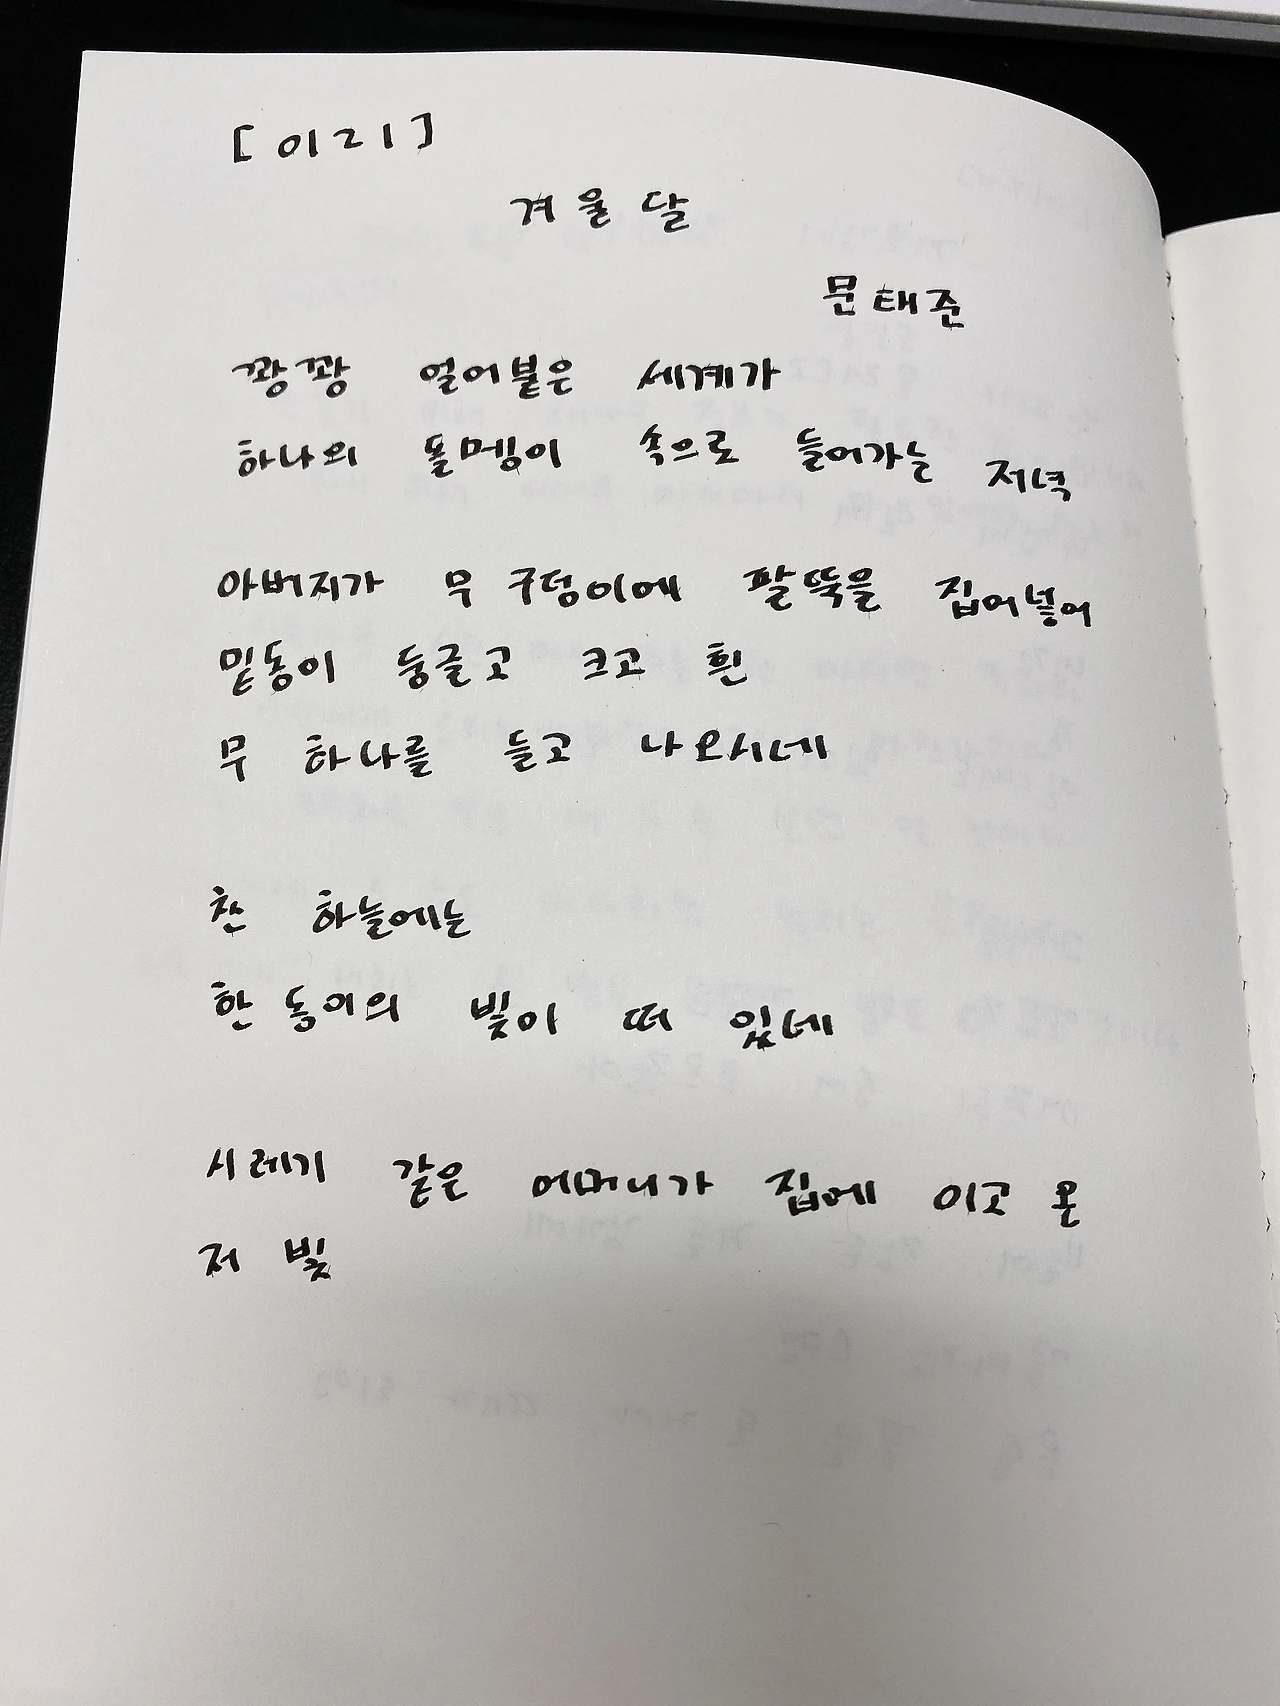 [이리]
겨울 달
문태준
꽝꽝 얼어붙은 세계가
하나의 돌멩이 속으로 들어가는 저녁
아버지가 무 구덩이에 팔뚝을 집어넣어
밑동이 둥글고 크고 흰
무 하나를 들고 나오시네
찬 하늘에는
한 동이의 빛이 떠 있네
시레기 같은 어머니가 집에 이고 온
저 빛